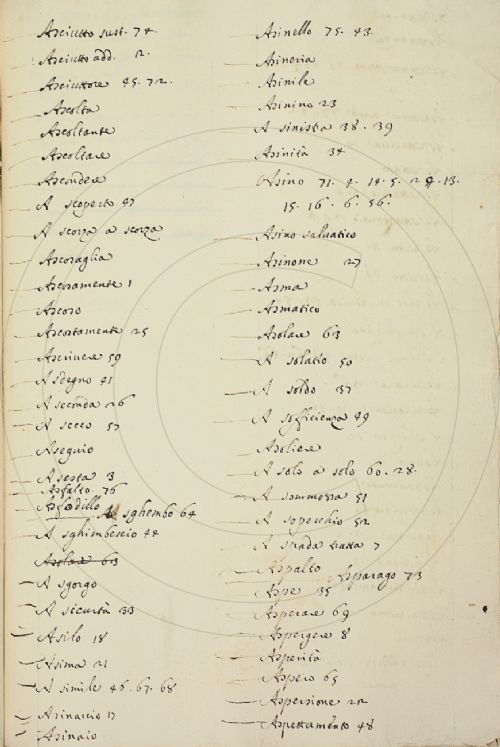 Asciutto sust. 74.
Asciutto add. 2.
Asciuttore 45. 72.
Ascolta
Ascoltante
Ascoltare
Ascondere
A scoperto 47
A scorza a scorza
Ascoraglia
Ascosamente 1
Ascoso
Ascortamente 25
Ascrivere 59
A sdegno 41
A seconda 26
A secco 57
Aseguio
A sesta 3
Asfalto 76
Asfodillo A sghembo 64
A sghimbescio 44
Asolare 63
A sgorgo
A sicurtà 33
Asilo 18
Asima 21
A simile 46. 67. 68
Asinaccio 17
Asinaio
Asinello 75. 43.
Asineria
Asinile
Asinino 23
A sinistra 38. 39
Asinità 34
Asino 71. 4. 14. 5. 24. 13.
15. 16. 6. 56.
Asino salvatico
Asinone 27
Asma
Asmatico
Asolare 63
A solatio 50
A soldo 37
A sofficienza 49
Asoliere
A solo a solo 60. 28.
A sommossa 51
A soperchio 52
A strada tratta 7
Aspalto
Asparago 73
Aspe 35
Asperare 69
Aspergere 8
Asperità
Aspero 65
Aspersione 22
Aspettamento 48